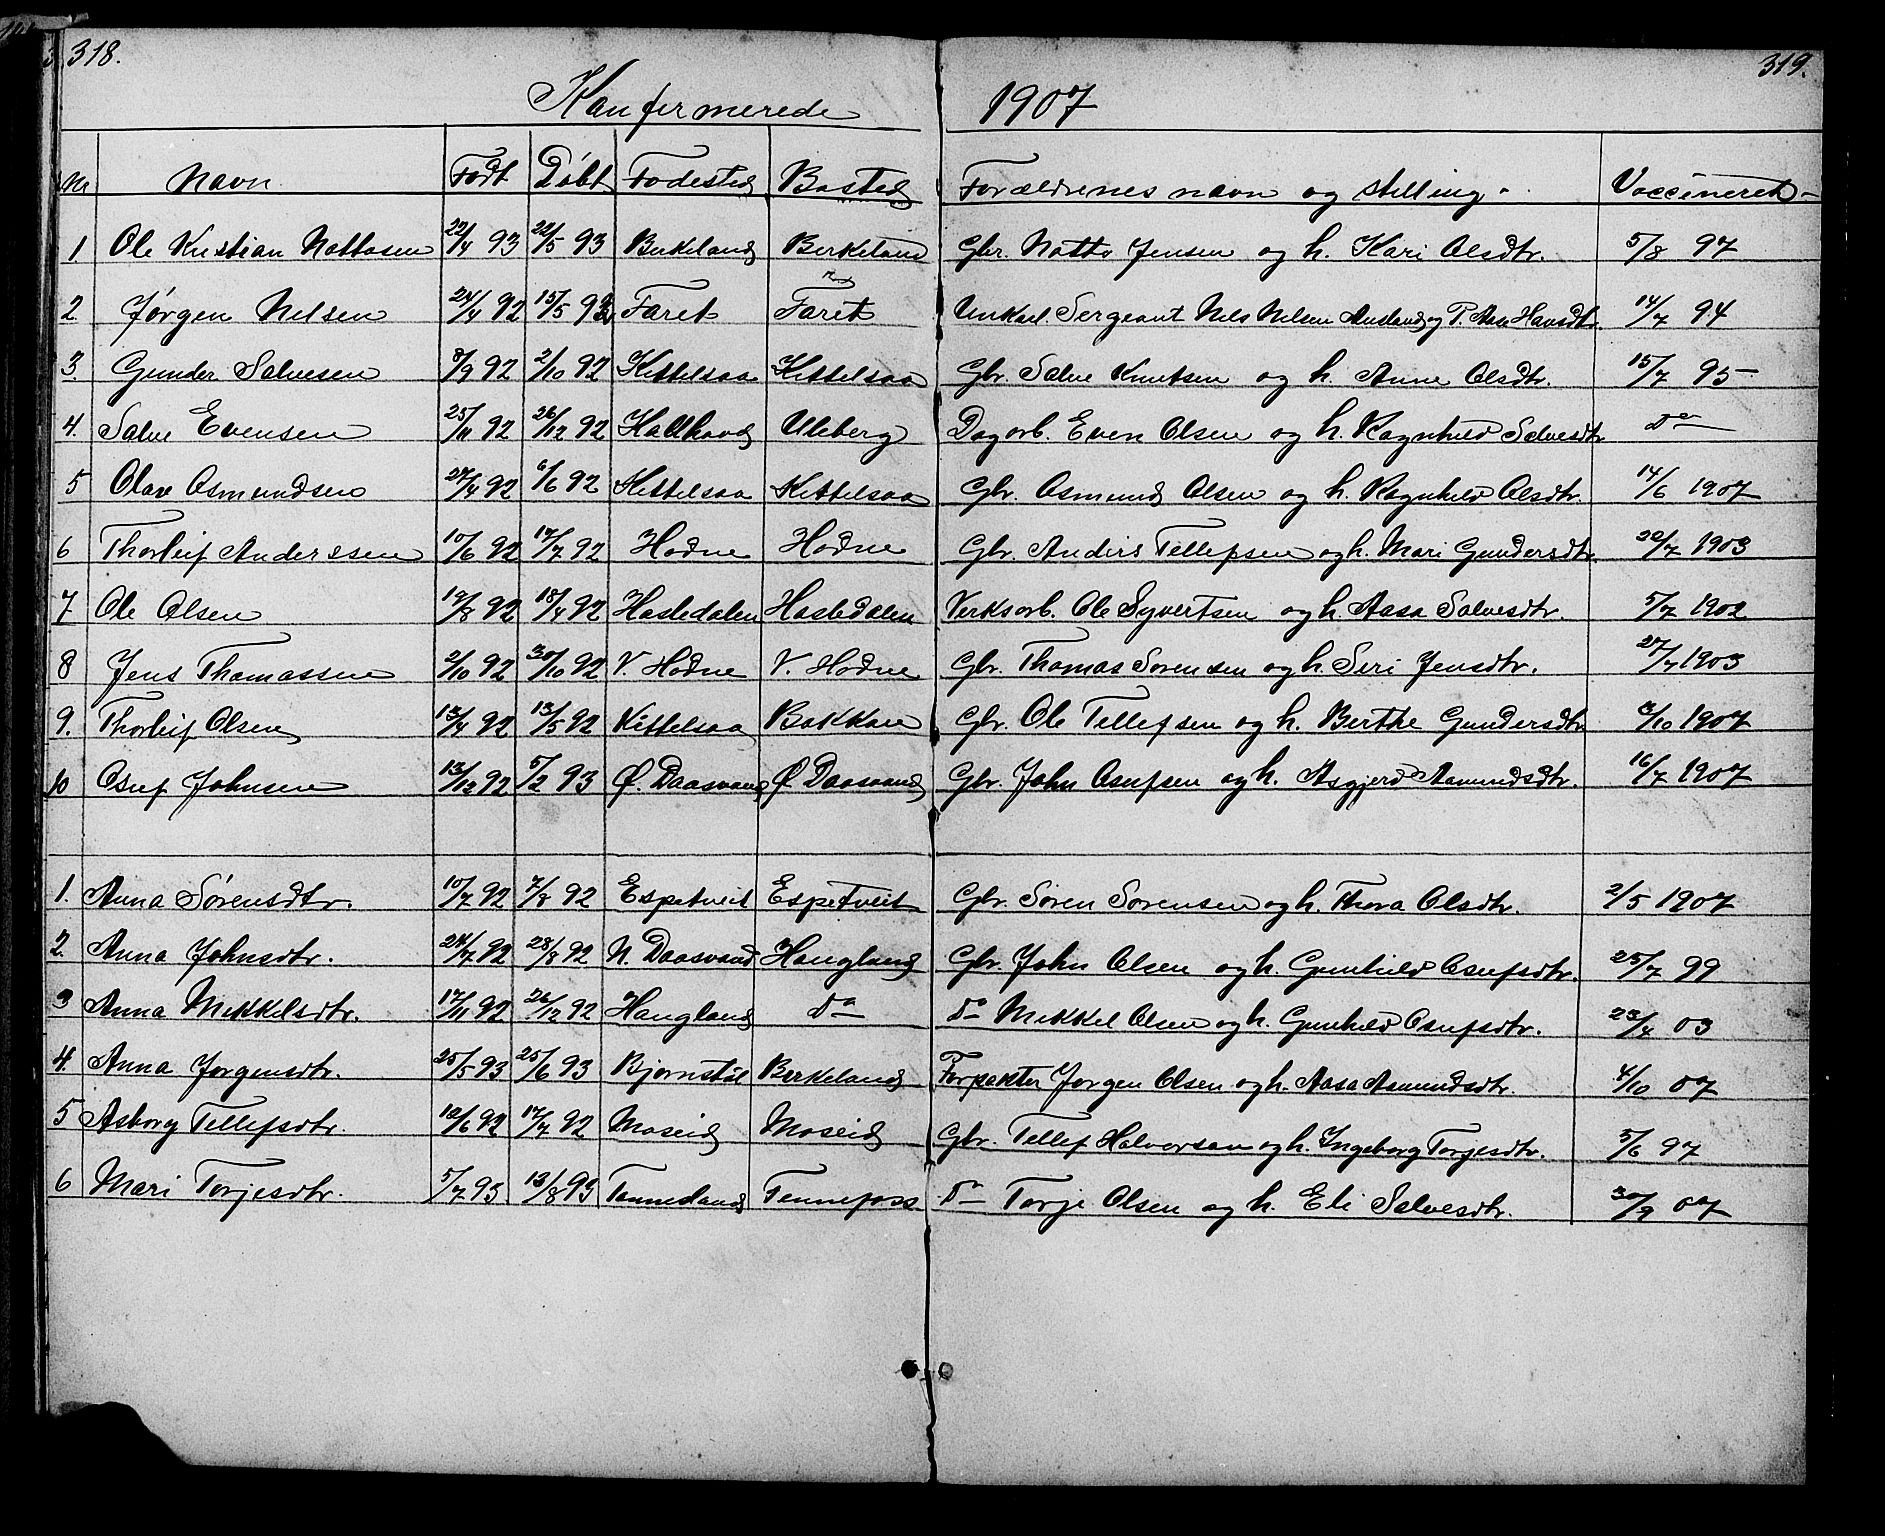 318.
319.
Konfirmerede 1907
Nr Navn Født Døbt Fødested Bosted Forældrenes navn og stilling. Vaccineret
1 Ole Kristian Nottosen 22/4 93 22/5 93 Birkeland Birkeland Gbr. Notto Jensen og h. Kari Olsdtr. 5/8 97
2. Jørgen Nilsen 24/4 92 15/5 92 Faret Faret Unkarl Sergeant Nils Nilsen og P. Aase Hansdtr. 14/7 94
3. Gunder Salvesen 8/9 92 2/10 92 Kittelsaa Kittelsaa Gbr. Salve Knutsen og h. Anne Olsdtr. 15/7 95
4. Salve Evensen 25/11 92 26/12 92 Uleberg Dagarb. Even Olsen og h. Ragnhild Salvesdtr Do
5 Olav Osmundsen 27/4 92 6/6 92 Kittelsaa Kittelsaa Gbr. Osmund Olsen og h. Ragnhild Olsdtr. 14/6 1907
6 Thorleif Anderssen 10/6 92 17/7 92 Hodne Hodne Gbr. Anders Tellefsen og h. Mari Gundersdtr. 22/7 1903
7 Ole Olsen 19/3 92 18/4 92 Hasledalen Hasledalen Verksarb. Ole Syvertsen og h. Aasa Salvesdtr. 5/7 1902
8 Jens Thomassen 2/10 92 30/10 92 V. Hodne V. Hodne Gbr. Thomas Sørensen og h. Siri Jensdtr. 27/7 1903
9. Thorleif Olsen 13/4 92 13/5 92 Kittelsaa Bakkan Gbr. Ole Tellefsen og h. Berthe Gundersdtr. 3/10 1907
10 Osuf Johnsen 13/12 92 5/2 93 Ø. Daasvand Ø Daasvand Gbr. John Osufsen og h. Asgjerd Aamundsdtr. 16/7 1907
1. Anna Sørensdtr. 10/7 92 7/8 92 Espetveit Espetveit Gbr. Søren Sørensen og h. Thora Olsdtr. 2/5 1907
2. Anna Johnsdtr. 24/7 92 28/8 92 N. Daasvand Haugland Gbr. John Olsen og h. Gunhild Osufsdtr. 25/7 99
3 Anna Mikkelsdtr. 17/11 92 26/12 92 Haugland Do Do Mikkel Olsen og h. Gunhild Osufsdtr. 23/7 03
4. Anna Jørgensdtr. 25/5 93 25/6 93 Bjørnstøl Birkeland Forpakter Jørgen Olsen og h. Aasa Asmundsdtr. 4/10 07
5 Asborg Tellefsdtr. 12/6 92 17/7 92 Moseid Moseid Gbr. Tellef Halvorsen og h. Ingeborg Torjesdtr. 5/6 97
6 Mari Torjesdtr. 5/7 93 13/8 93 Tønnesland Tennefoss Do Torje Olsen og h. Eli Salvesdtr. 30/9 07